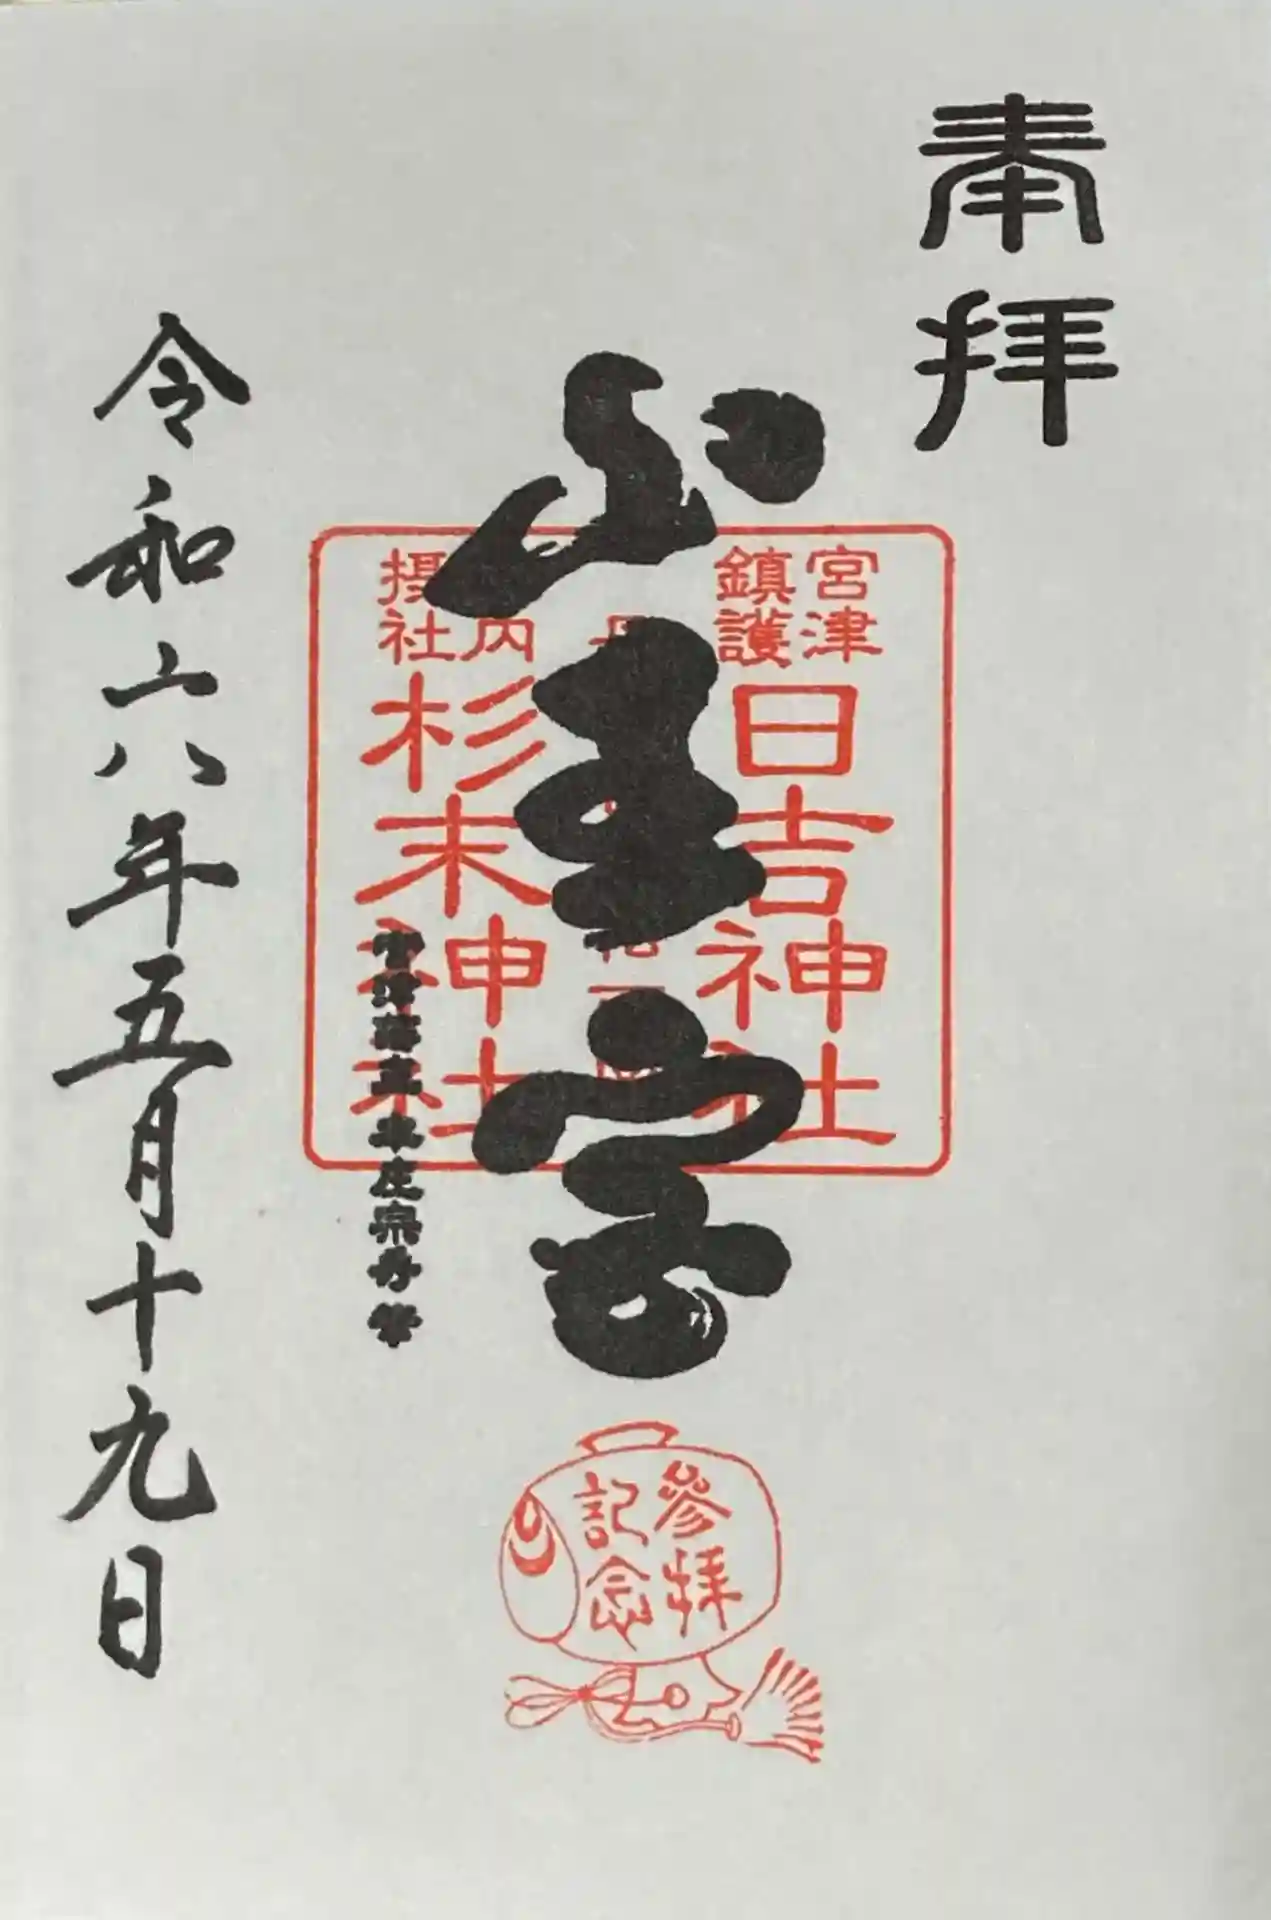 奉拝
山王宮
宮津
鎮護
日吉神社
内
摂社
杉末神社
宮津藩主 本庄宗秀筆
令和六年五月十九日
參拝
記念